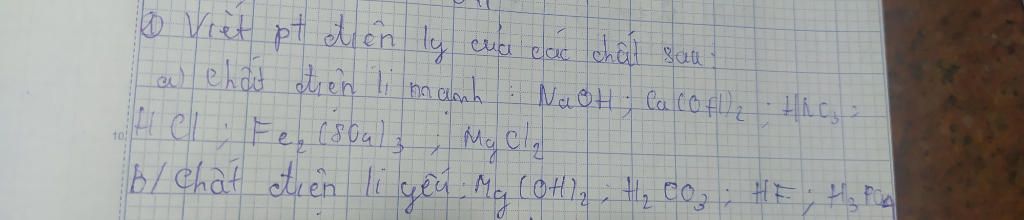 ① Viết pt điện ly của các chất sau:
a) chất điện li mạnh : NaOH ; Ca(OH)₂ ; HNO₃ ;
HCl ; Fe₂(SO₄)₃ ; MgCl₂
b/ chất điện li yếu: Mg(OH)₂ ; H₂CO₃ ; HF ; H₃PO₄